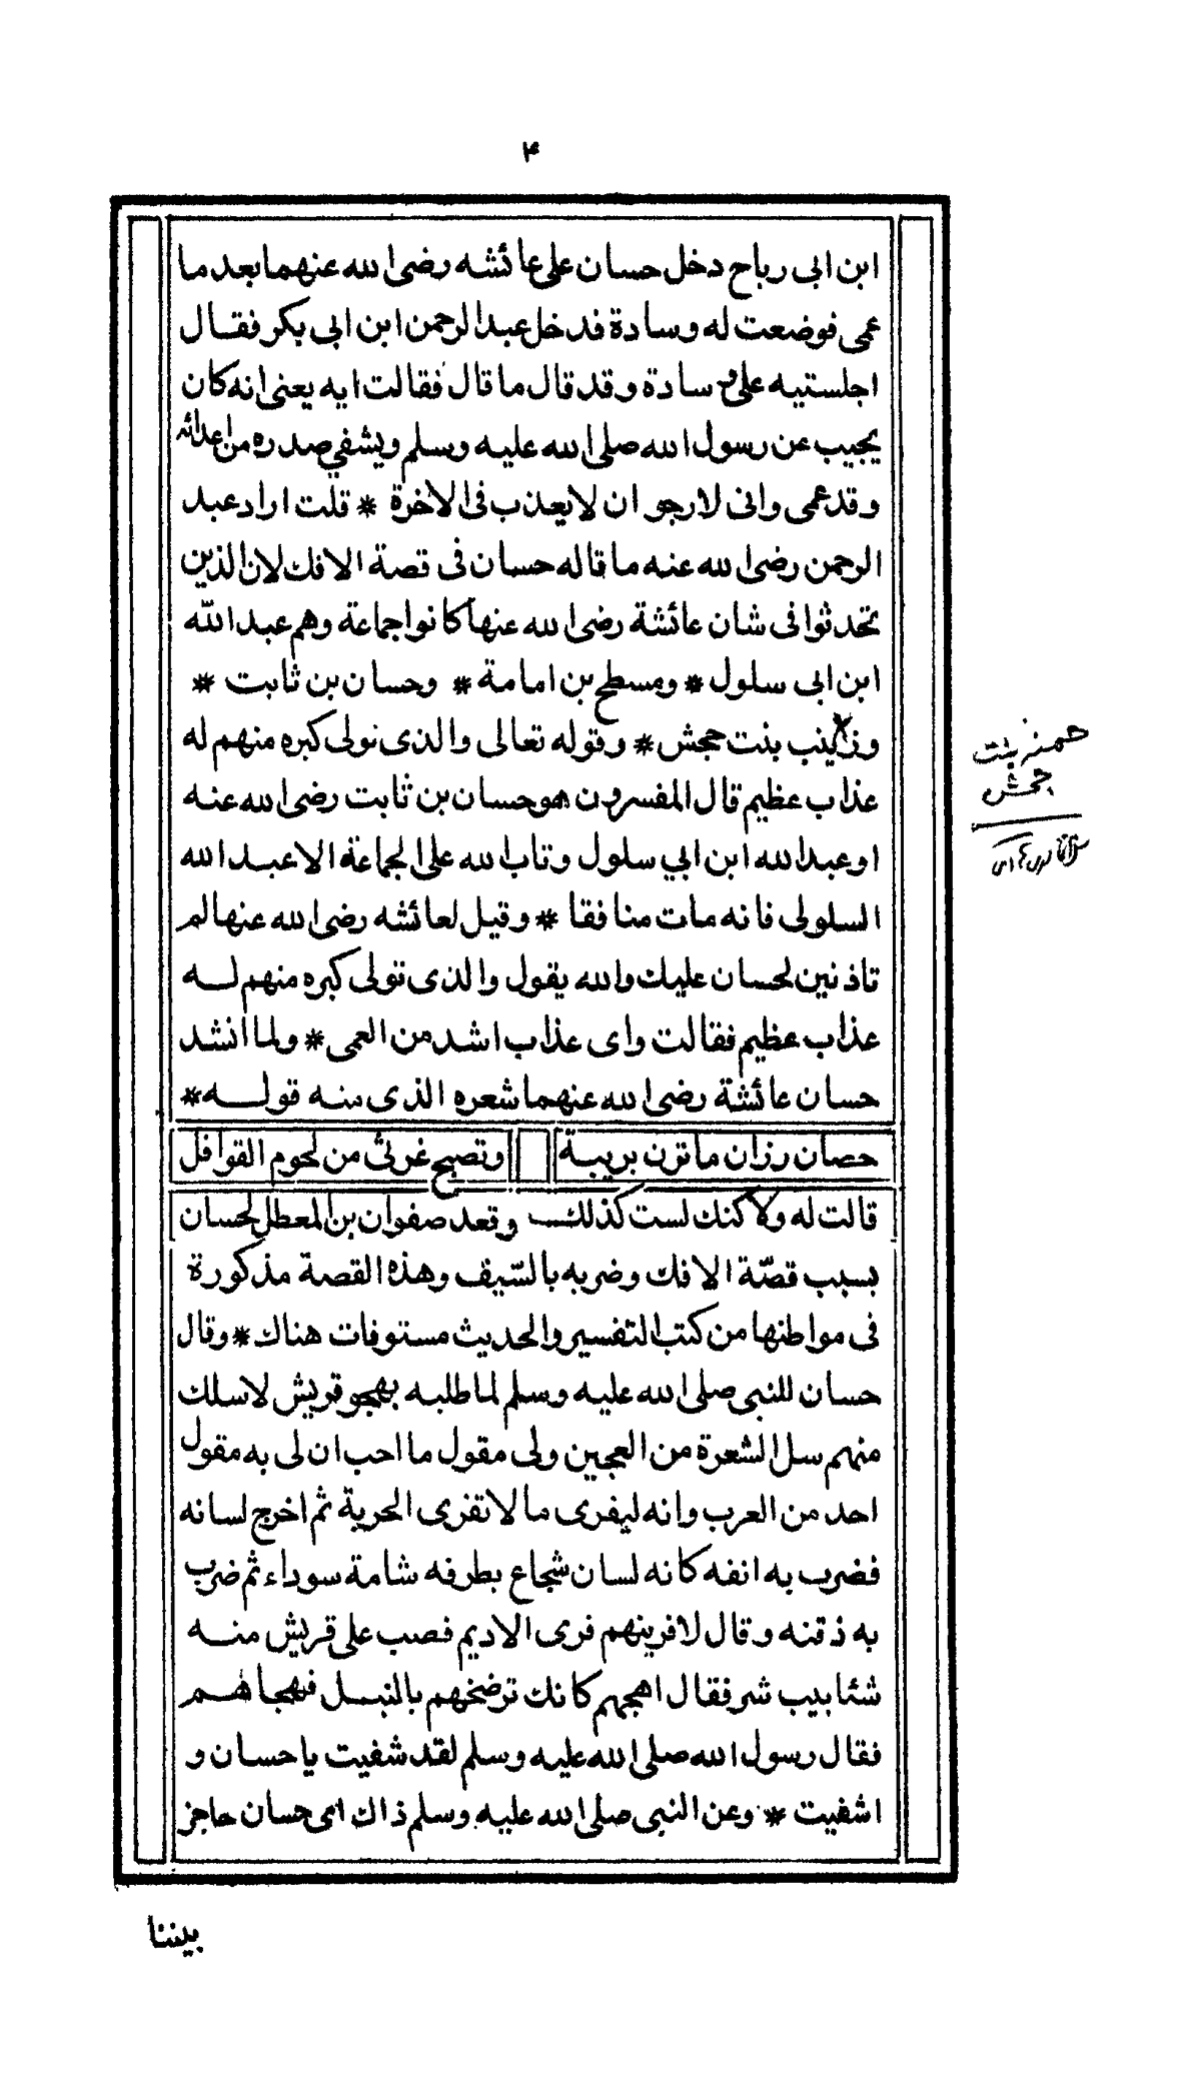 ۴
ابن ابى رباح دخل حسان على عائشه رضى الله عنهما بعد ما
عمى فوضعت له وسادة فدخل عبد الرحمن ابن ابى بكر فقال
اجلستيه على وسادة وقد قال ما قال فقالت ايه يعنى انه كان
يجيب عن رسول الله صلى الله عليه وسلم ويشفي صدره من اعدائه
وقد عمى وانى لارجو ان لا يعذب فى الاخرة * قلت اراد عبد
الرحمن رضى الله عنه ما قاله حسان فى قصة الافك لان الذين
تحدثوا فى شان عائشة رضى الله عنها كانوا جماعة وهم عبد الله
ابن ابى سلول * ومسطح بن امامة * وحسان بن ثابت *
وزينب بنت جحش * وقوله تعالى والذى تولى كبره منهم له
عذاب عظيم قال المفسرون هو حسان بن ثابت رضى الله عنه
او عبد الله ابن ابي سلول وتاب الله على الجماعة الا عبد الله
السلولى فانه مات منافقا * وقيل لعائشه رضى الله عنها لم
تاذنين لحسان عليك والله يقول والذى تولى كبره منهم له
عذاب عظيم فقالت واى عذاب اشد من العمى * ولما انشد
حسان عائشة رضى الله عنهما شعره الذى منه قوله *
حصان رزان ما تزن بريبة وتصبح غرثى من لحوم الغوافل
قالت له ولاكنك لست كذلك وقعد صفوان بن المعطل لحسان
بسبب قصّة الافك وضربه بالسّيف وهذه القصة مذكورة
فى مواطنها من كتب التفسير والحديث مستوفات هناك * وقال
حسان للنبى صلى الله عليه وسلم لما طلبه بهجو قريش لاسلك
منهم سل الشعرة من العجين ولى مقول ما احب ان لى به مقول
احد من العرب وانه ليفرى ما لا تفرى الحربة ثم اخرج لسانه
فضرب به انفه كانه لسان شجاع بطرفه شامة سوداء ثم ضرب
به ذقنه وقال لافرينهم فرى الاديم فصب على قريش منه
شئابيب شر فقال اهجهم كانك ترضخهم بالنبل فهجاهم
فقال رسول الله صلى الله عليه وسلم لقد شفيت يا حسان و
اشفيت * وعن النبى صلى الله عليه وسلم ذاك امى حسان حاجز
بيننا
حمنہ بنت
جحش